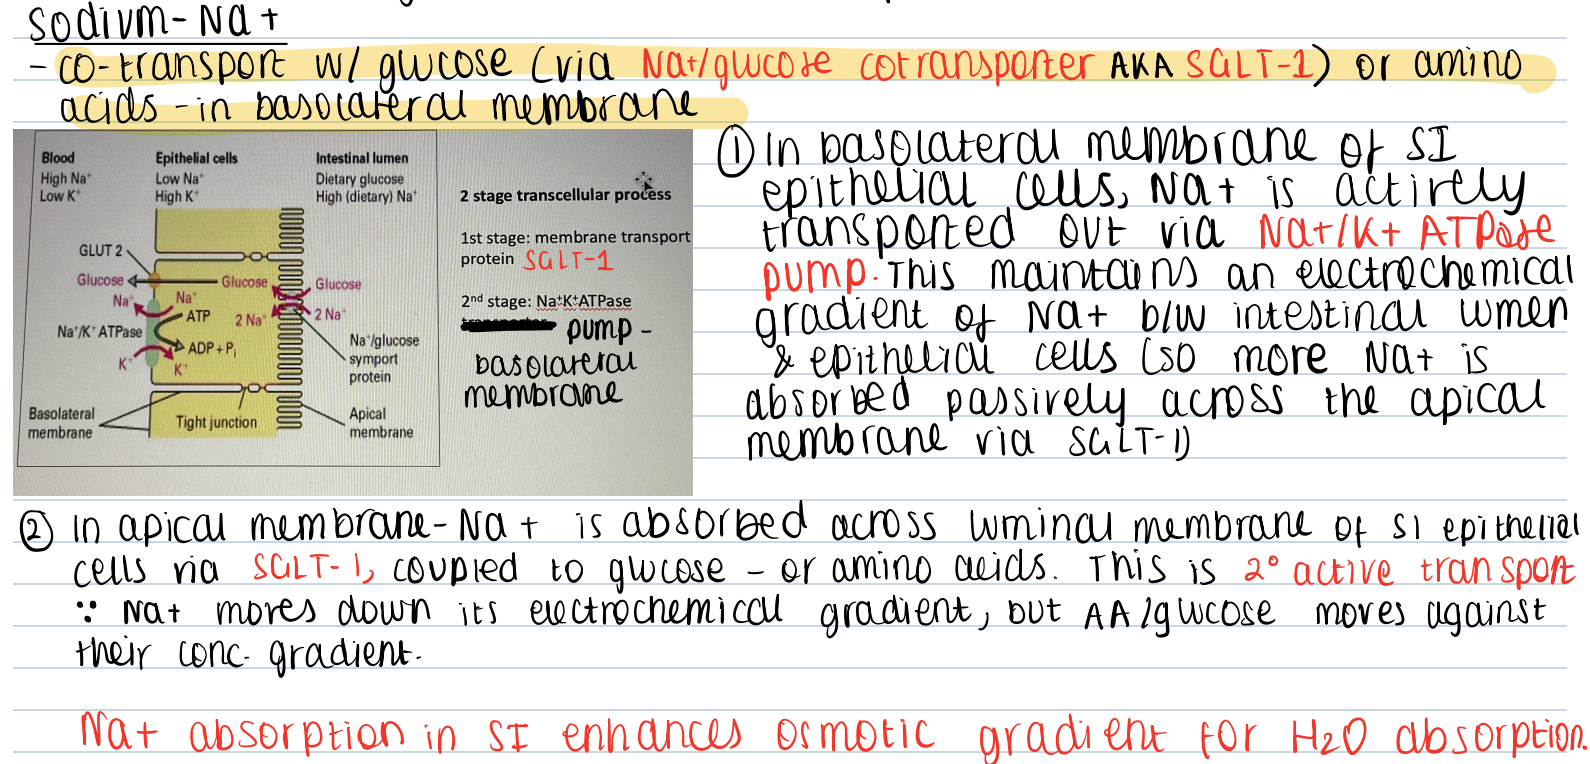 Sodium - Na+
- co-transport w/ glucose (via Na+/glucose cotransporter AKA SGLT-1) or amino
acids - in basolateral membrane
Blood
High Na+
Low K+
Epithelial cells
Low Na+
High K+
Intestinal lumen
Dietary glucose
High (dietary) Na+
GLUT 2
Glucose
Glucose
Glucose
Na+
Na+
ATP
2 Na+
2 Na+
Na+/K+ ATPase
ADP + Pi
K+
K+
Na+/glucose
symport
protein
Basolateral
membrane
Tight junction
Apical
membrane
2 stage transcellular process
1st stage: membrane transport
protein SGLT-1
2nd stage: Na+K+ATPase
pump -
basolateral
membrane
① In basolateral membrane of SI
epithelial cells, Na+ is actively
transported out via Na+/K+ ATPase
pump. This maintains an electrochemical
gradient of Na+ b/w intestinal lumen
& epithelial cells (so more Na+ is
absorbed passively across the apical
membrane via SGLT-1)
② In apical membrane - Na+ is absorbed across luminal membrane of SI epithelial
cells via SGLT-1, coupled to glucose - or amino acids. This is 2° active transport
∵ Na+ moves down its electrochemical gradient, but AA/glucose moves against
their conc. gradient.
Na+ absorption in SI enhances osmotic gradient for H2O absorption.